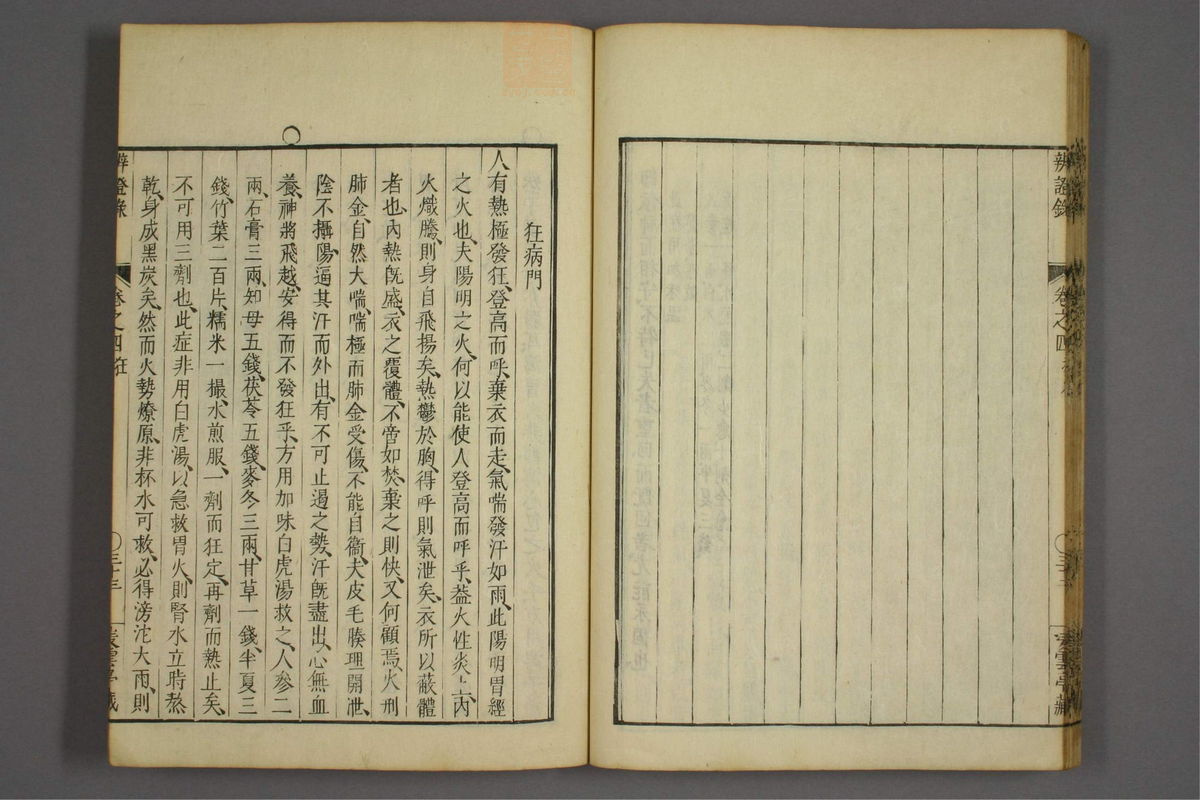 辨證錄
卷之四
狂病門
人有熱極發狂、登高而呼、棄衣而走、氣喘發汗如雨、此陽明胃經
之火也、夫陽明之火、何以能使人登高而呼乎、蓋火性炎上、內
火熾騰、則身自飛揚矣、熱鬱於胸、得呼則氣泄矣、衣所以蔽體
者也、內熱旣盛、衣之覆體、不啻如焚、棄之則快、又何顧焉、火刑
肺金、自然大喘、喘極而肺金受傷、不能自衞、夫皮毛腠理開泄、
陰不攝陽、逼其汗而外出、有不可止遏之勢、汗旣盡出、心無血
養、神將飛越、安得而不發狂乎、方用加味白虎湯救之、人參二
兩、石膏三兩、知母五錢、茯苓五錢、麥冬三兩、甘草一錢、半夏三
錢、竹葉二百片、糯米一撮、水煎服、一劑而狂定、再劑而熱止矣、
不可用三劑也、此症非用白虎湯、以急救胃火、則腎水立時熬
乾、身成黑炭矣、然而火勢燎原、非杯水可救、必得滂沱大雨、則
辨證錄 卷之四 狂